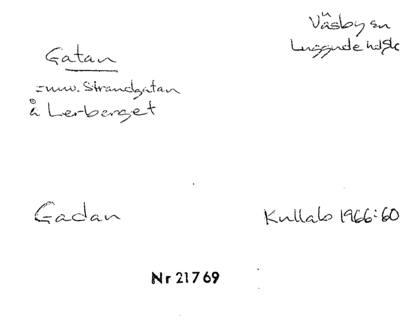 Väsby sn
Luggude hd Sk
Gatan
= nuv. Strandgatan
å Lerberget
Gadan
Kullab 1966:60
Nr 21769